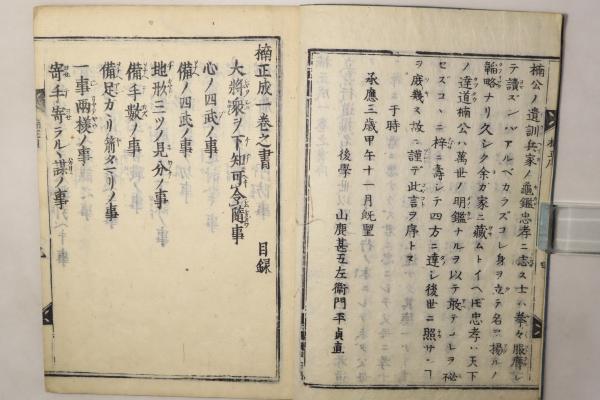 楠公ノ遺訓兵家ノ龜鑑忠孝ニ志ス士ハ拳々服膺シ
テ讀ズンバアルベカラズコレ身ヲ立テ名ヲ揚ルノ
韜略ナリ久シク余ガ家ニ藏ムトイヘドモ忠孝ハ天下
ノ達道楠公ハ萬世ノ明鑑ナルヲ以テ敢テコレヲ必
セズコヽニ梓ニ壽シテ四方ニ達シ後世ニ照サンヿ
ヲ庶幾ス故ニ謹テ此言ヲ序トス
于時
承應三歳甲午十一月既望
後學 山鹿甚五左衛門平貞直
楠正成一巻之書 目録
大將衆ヲ下知可令隨事
心ノ四武ノ事
備ノ四武ノ事
地形三ツノ見分ノ事
備手數ノ事
備足ガヽリ箭ダヽリノ事
一事兩様ノ事
寄手寄ラルヽ謀ノ事